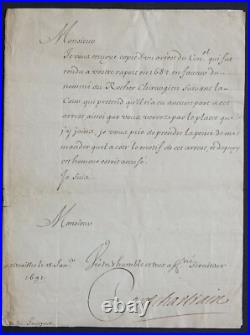 Monsieur
Je vous envoye copie d'un arrest du Con.el qui fut
rendu a vostre raport en 1687. en faveur du
nommé du Rocher Chirurgien suivant la
Cour qui pretend qu'il n'a eu aucune part a cet
arrest ainsi que vous verrez par le placet que
j'y joins, je vous prie de prendre la peine de me
mander quel a esté le motif de cet arrest, et
cet homme
Je suis
Monsieur
a Versailles le 18. Janv.
1691.
Vostre tres humble et tres aff.né serviteur
Pontchartrain